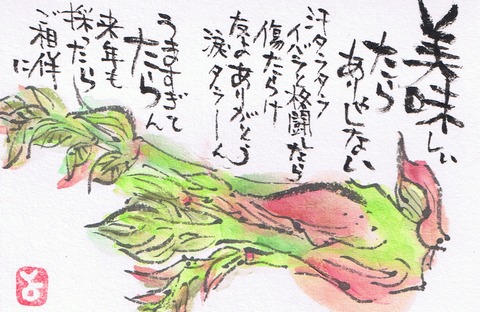 美味しい
たら
ありゃしない
汗タラタラ
イバラと格闘したら
傷だらけ
友よありがとう
涙タラーん
うますぎて
たらん
来年も
採ったら
ご相伴に